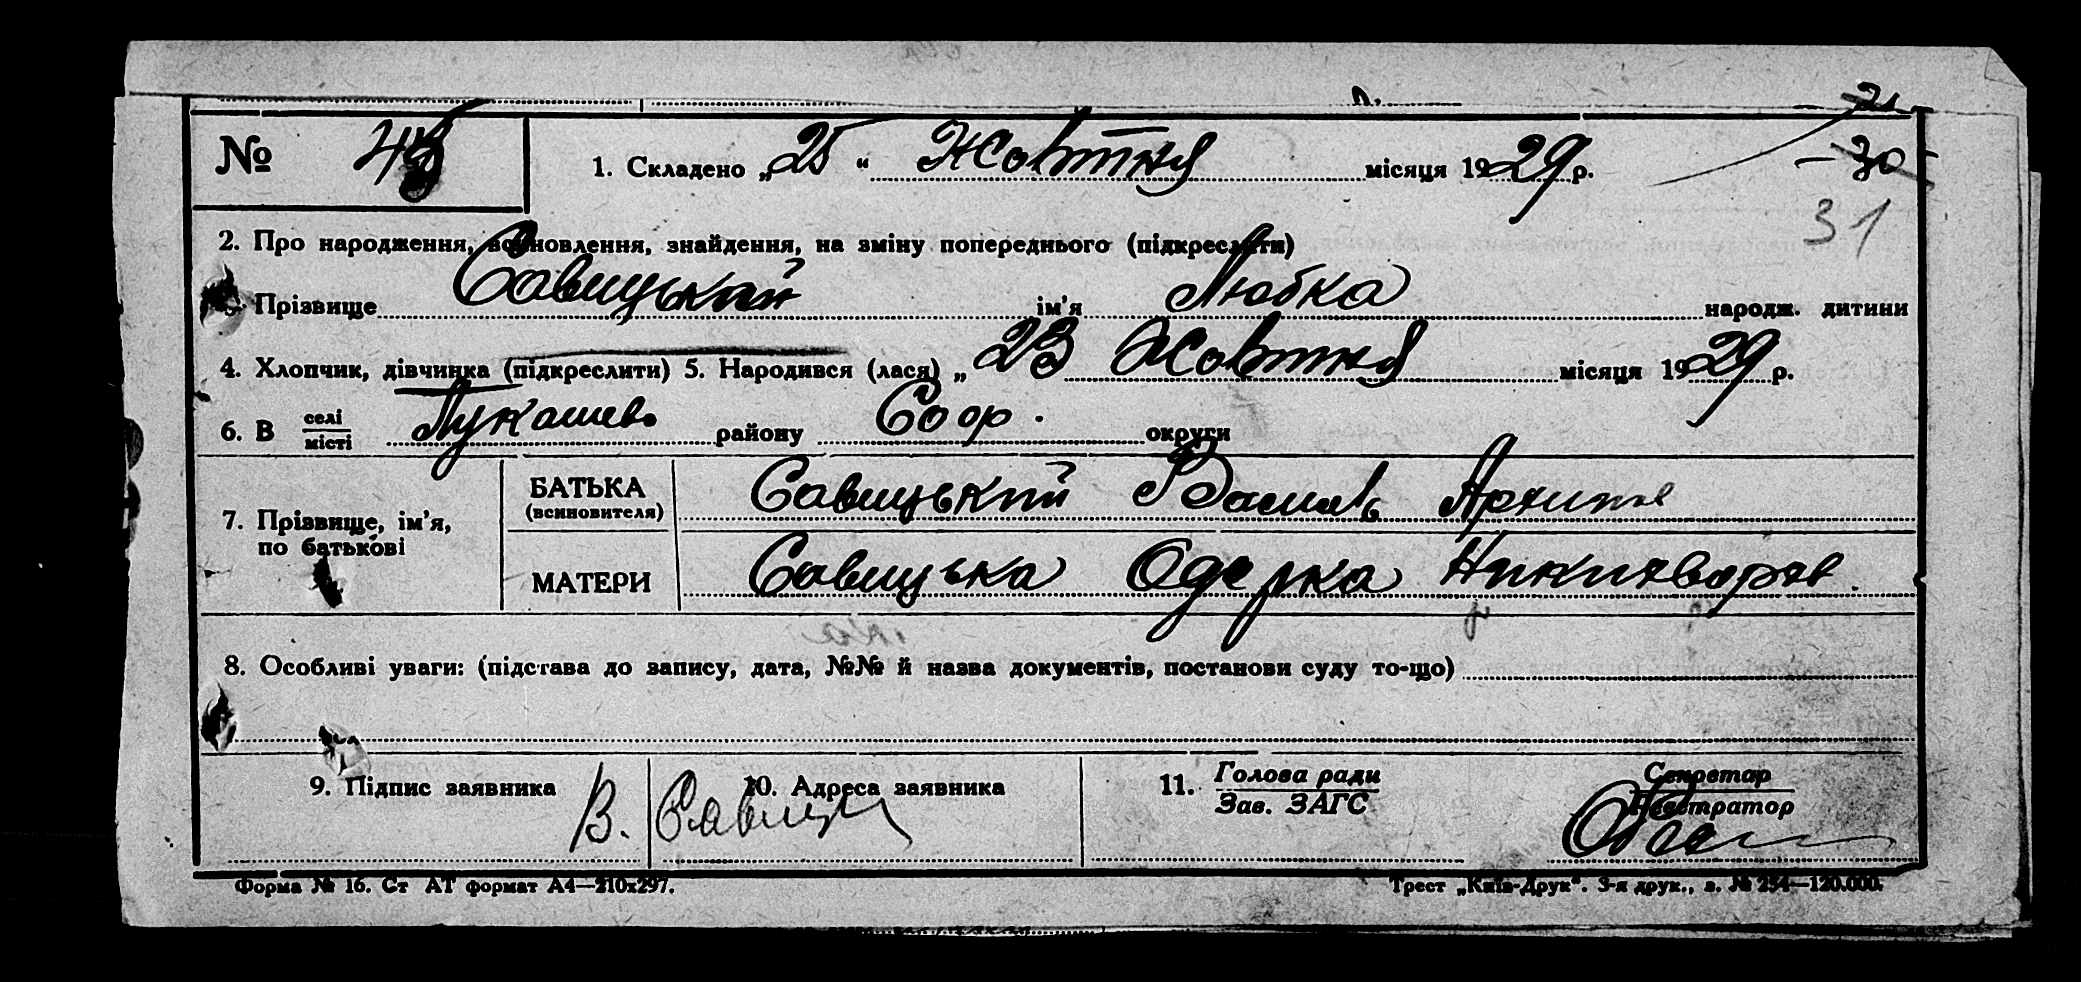 № 48
1. Складено „25“ Жовтня місяця 1929 р. — 30 —
31
2. Про народження, всиновлення, знайдення, на зміну попереднього (підкреслити)
Прізвище Савицький ім'я Любка народж. дитини
4. Хлопчик, дівчинка (підкреслити) 5. Народився (лася) „23 Жовтня місяця 1929 р.
6. В селі місті Лукашево району округи
7. Прізвище, ім'я, по батькові
БАТЬКА (всиновителя) Савицький Василь Архипов
МАТЕРИ Савицька Одарка Никихворов.
8. Особливі уваги: (підстава до запису, дата, №№ й назва документів, постанови суду то-що)
9. Підпис заявника В. Савицьк 10. Адреса заявника 11. Голова ради Зав. ЗАГС Секретар Реєстратор
Форма № 16. Ст АТ формат А4—210х297. Трест „Київ-Друк“. 3-я друк., з. № 254—120.000.